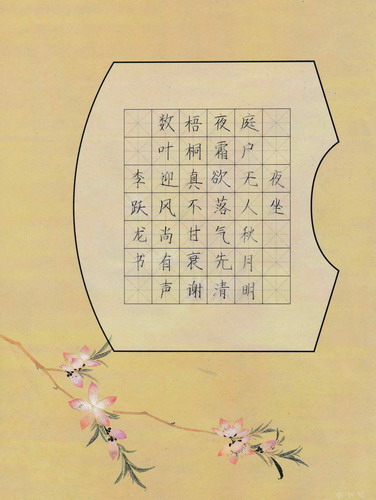 夜坐
庭户无人秋月明
夜霜欲落气先清
梧桐真不甘衰谢
数叶迎风尚有声
李跃龙书